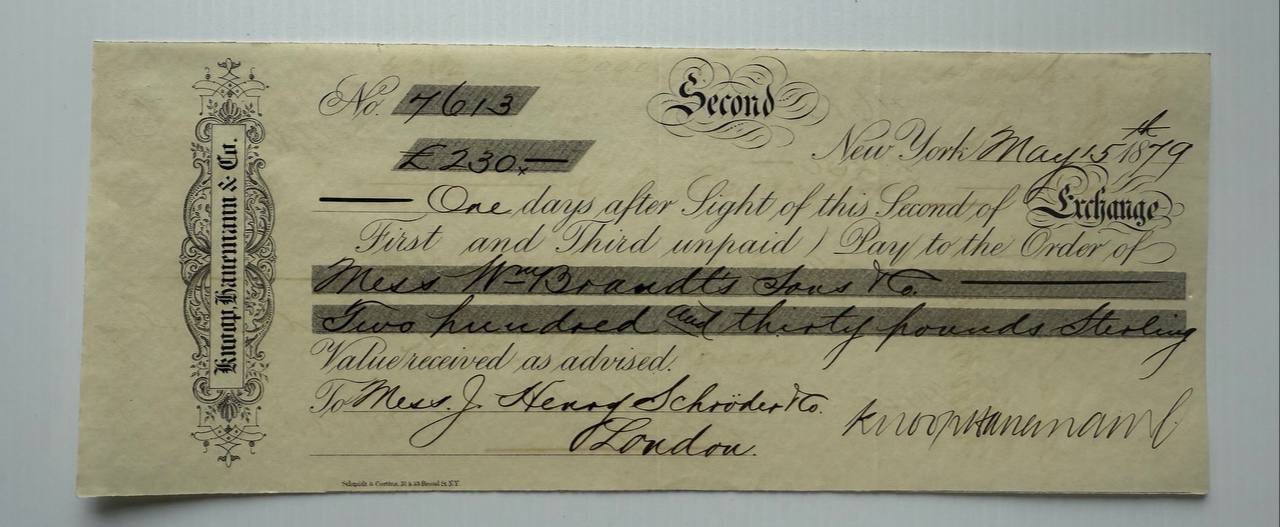 Knoop, Hanemann & Co.
No. 7613
Second
£230.—
New York May 15th 1879
One days after Sight of this Second of Exchange
First and Third unpaid) Pay to the Order of
Mess Wm Brandts Sons & Co.
Two hundred and thirty pounds Sterling
Value received as advised.
To Mess. J. Henry Schröder & Co.
London.
Knoop Hanemann &
Broad St. N.Y.